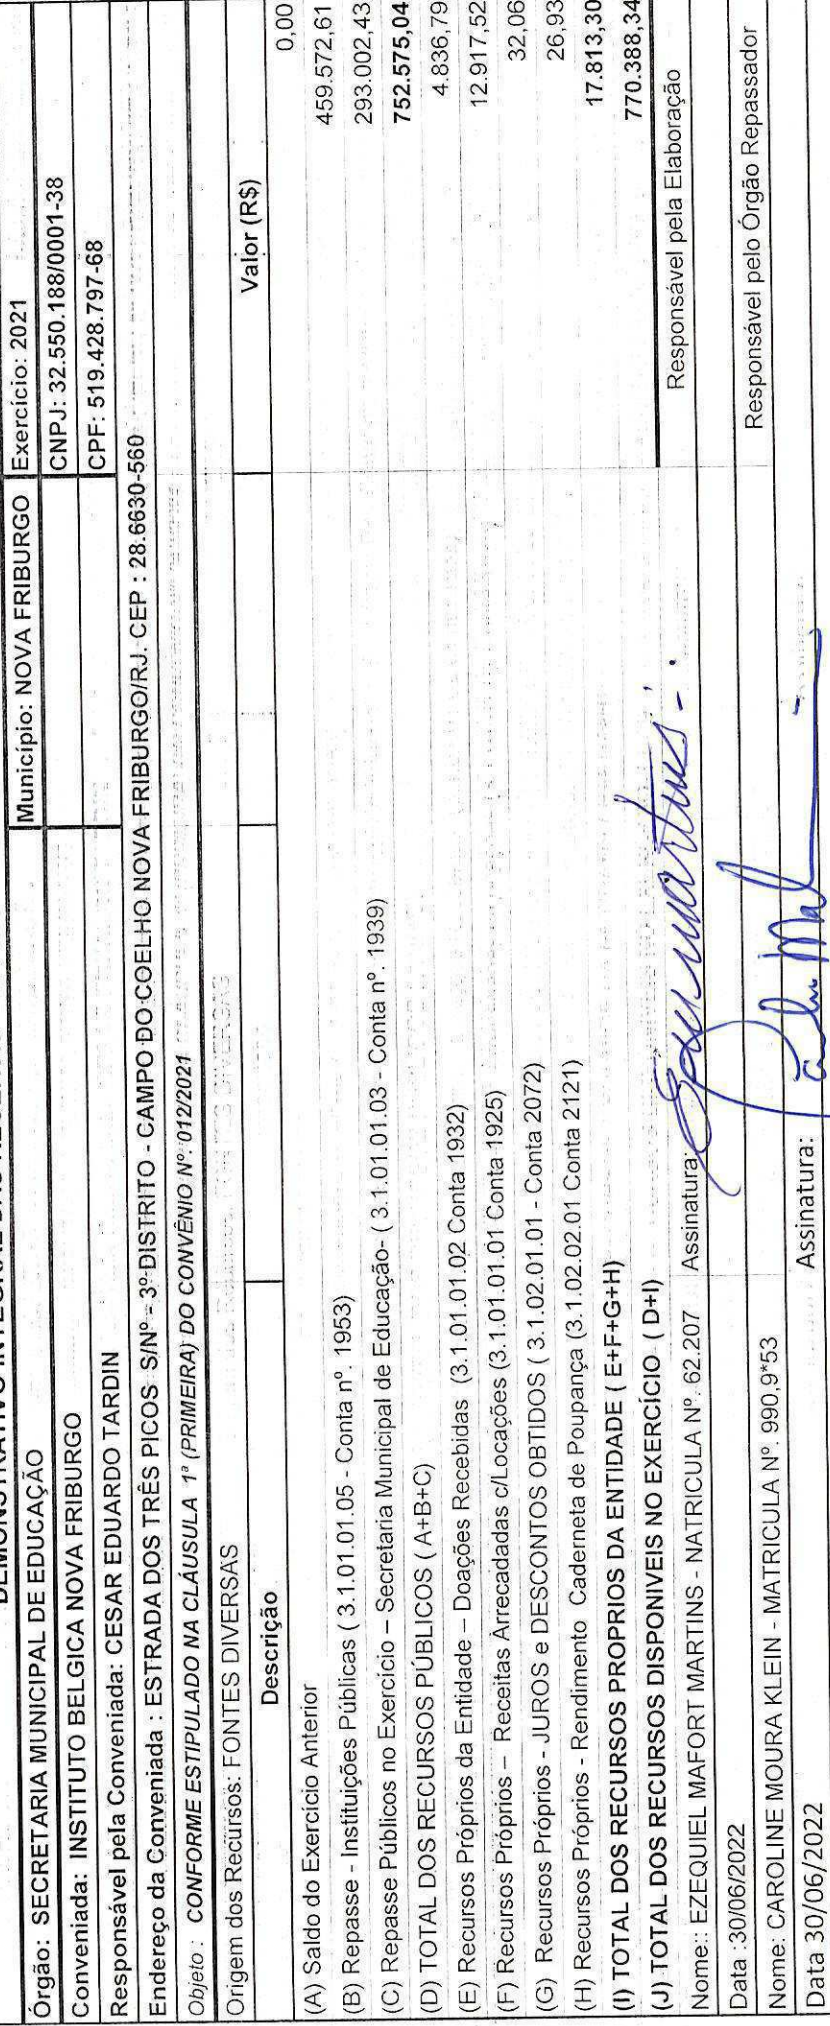 Órgão: SECRETARIA MUNICIPAL DE EDUCAÇÃO Município: NOVA FRIBURGO Exercício: 2021
Conveniada: INSTITUTO BELGICA NOVA FRIBURGO CNPJ: 32.550.188/0001-38
Responsável pela Conveniada: CESAR EDUARDO TARDIN CPF: 519.428.797-68
Endereço da Conveniada : ESTRADA DOS TRÊS PICOS S/Nº - 3º DISTRITO - CAMPO DO COELHO NOVA FRIBURGO/RJ. CEP : 28.6630-560
Objeto : CONFORME ESTIPULADO NA CLÁUSULA 1ª (PRIMEIRA) DO CONVÊNIO Nº. 012/2021
Origem dos Recursos: FONTES DIVERSAS
Descrição Valor (R$)
(A) Saldo do Exercício Anterior 0,00
(B) Repasse - Instituições Públicas ( 3.1.01.01.05 - Conta nº. 1953) 459.572,61
(C) Repasse Públicos no Exercício – Secretaria Municipal de Educação- ( 3.1.01.01.03 - Conta nº. 1939) 293.002,43
(D) TOTAL DOS RECURSOS PÚBLICOS ( A+B+C) 752.575,04
(E) Recursos Próprios da Entidade – Doações Recebidas (3.1.01.01.02 Conta 1932) 4.836,79
(F) Recursos Próprios – Receitas Arrecadadas c/Locações (3.1.01.01.01 Conta 1925) 12.917,52
(G) Recursos Próprios - JUROS e DESCONTOS OBTIDOS ( 3.1.02.01.01 - Conta 2072) 32,06
(H) Recursos Próprios - Rendimento Caderneta de Poupança (3.1.02.02.01 Conta 2121) 26,93
(I) TOTAL DOS RECURSOS PROPRIOS DA ENTIDADE ( E+F+G+H) 17.813,30
(J) TOTAL DOS RECURSOS DISPONIVEIS NO EXERCÍCIO ( D+I) 770.388,34
Nome:: EZEQUIEL MAFORT MARTINS - NATRICULA Nº. 62.207 Assinatura: Responsável pela Elaboração
Data :30/06/2022
Nome: CAROLINE MOURA KLEIN - MATRICULA Nº. 990,9*53 Responsável pelo Órgão Repassador
Data 30/06/2022 Assinatura: